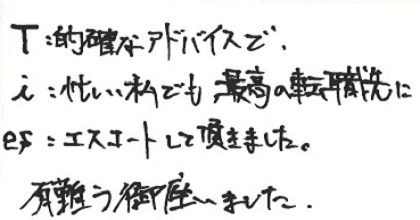 T:的確なアドバイスで、
i:忙しい私でも最高の転職先に
es:エスコートして頂きました。
有難う御座いました.